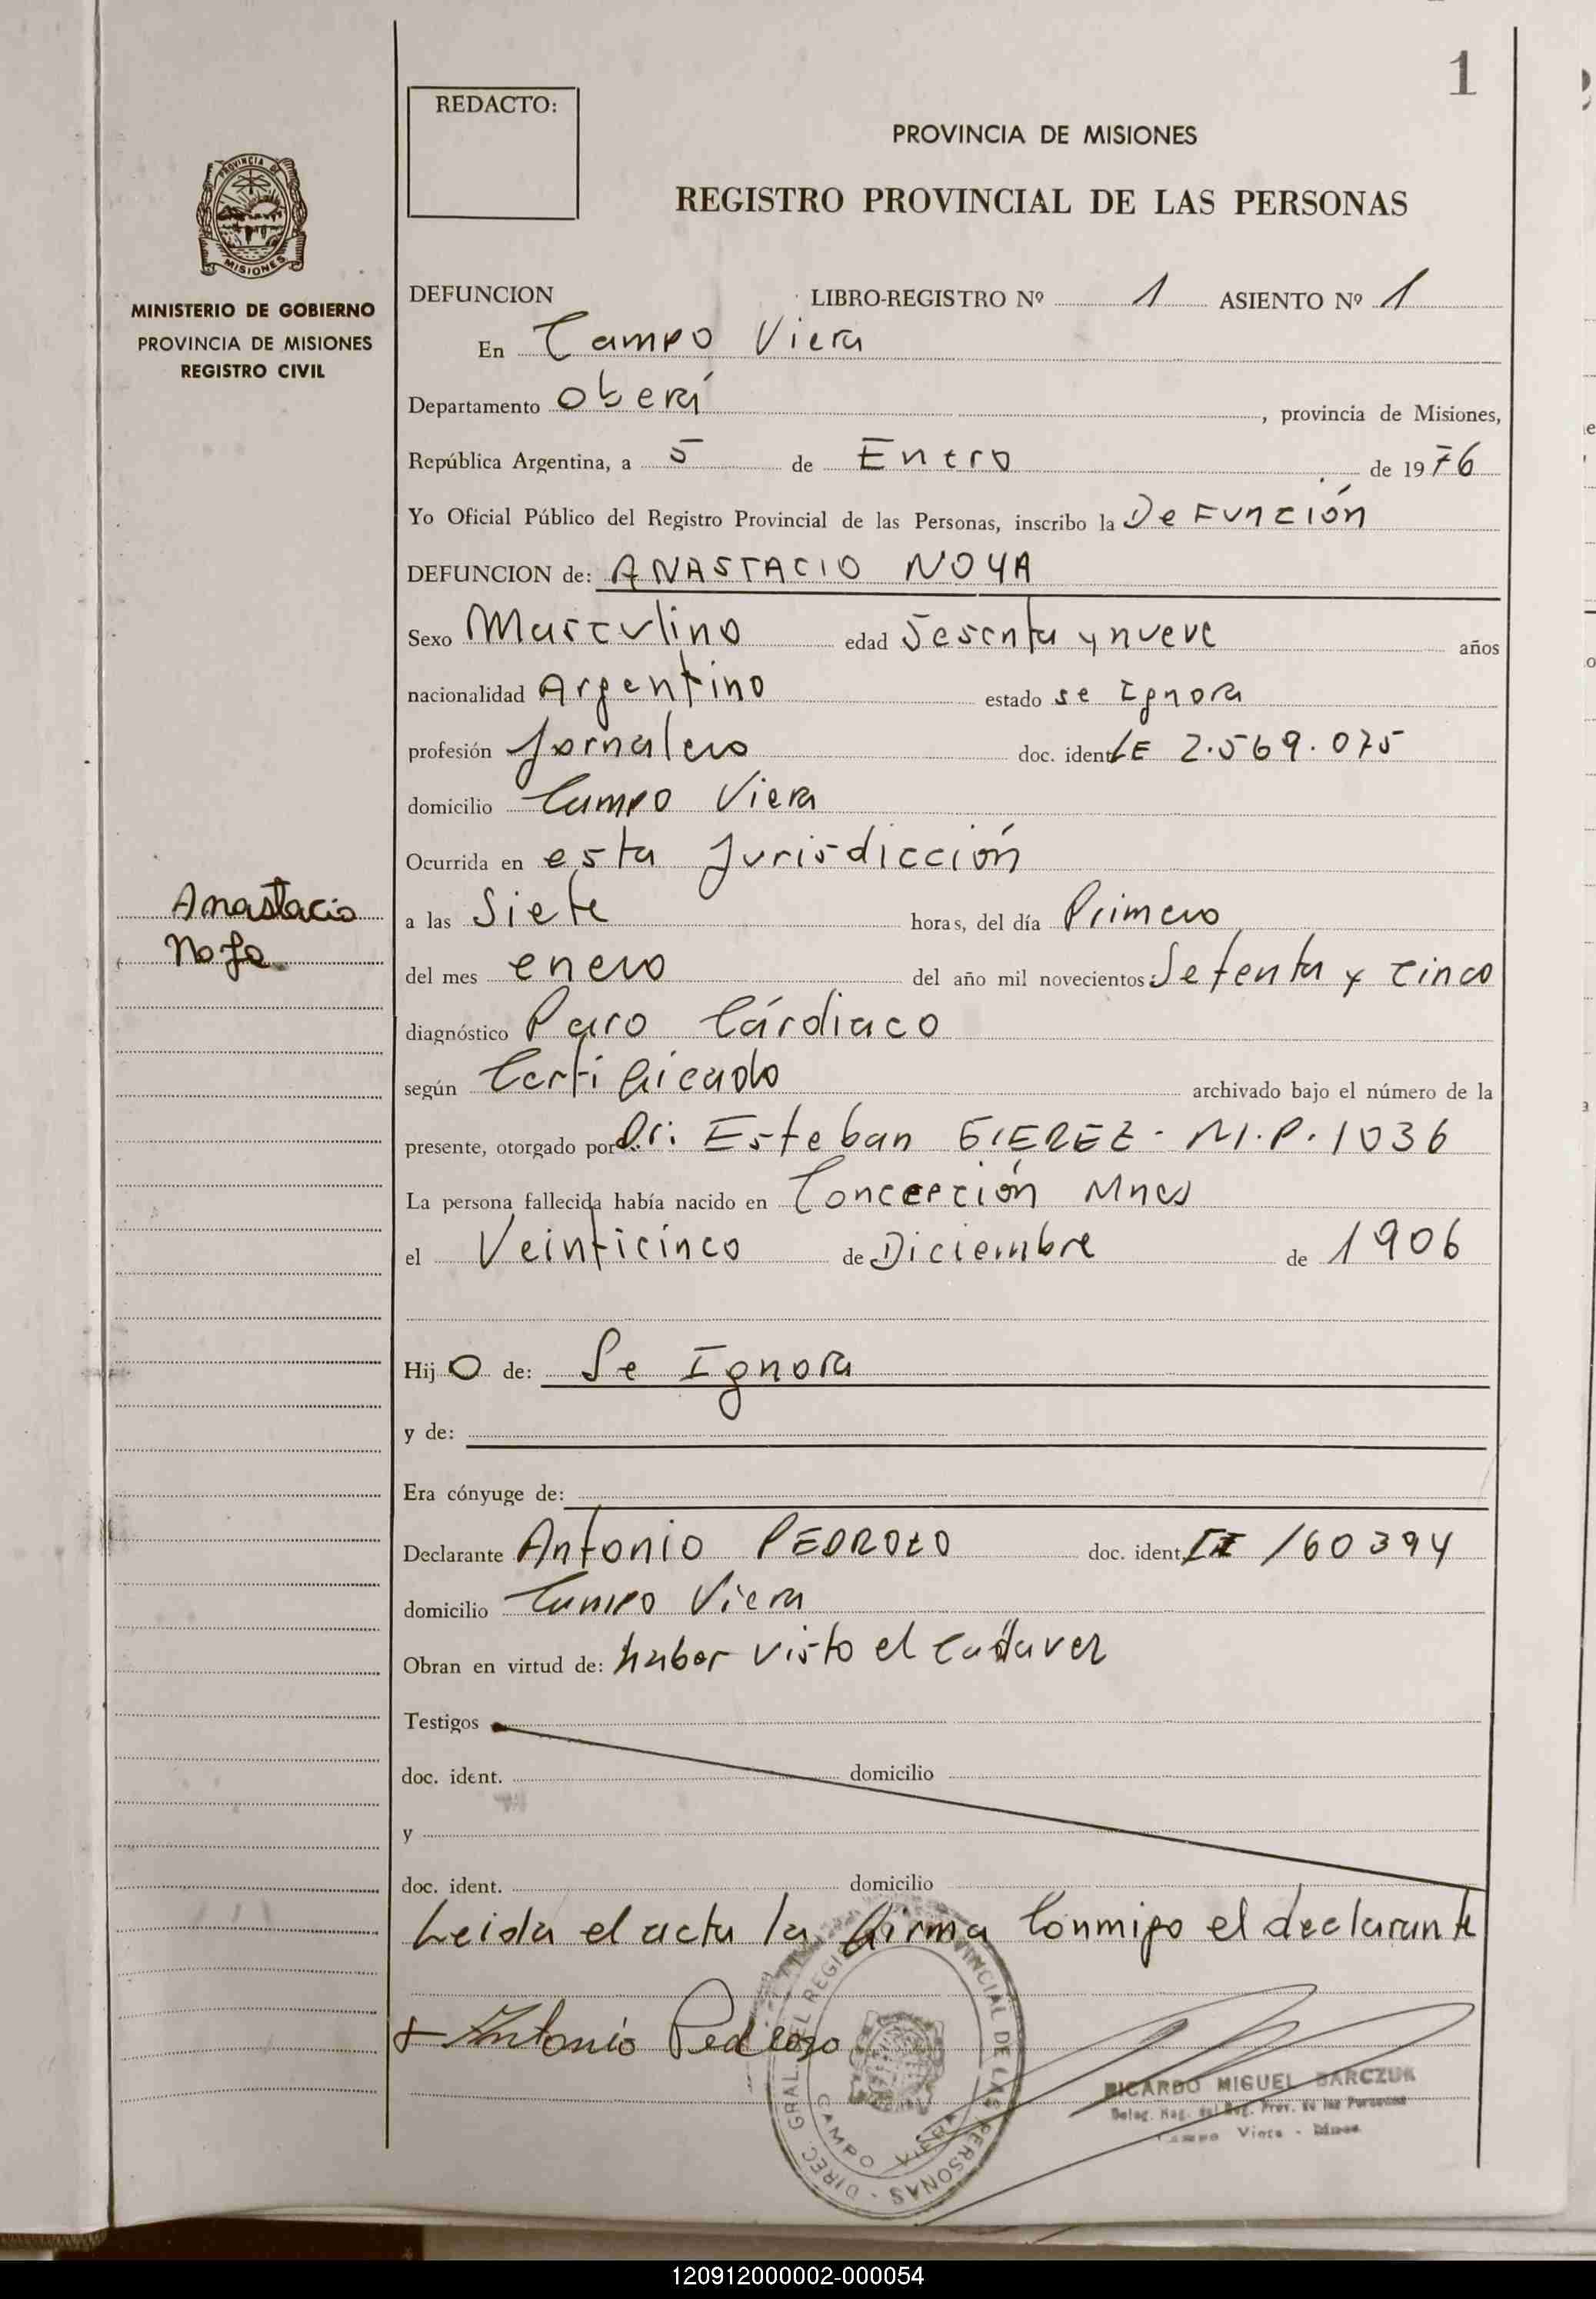 1
REDACTO:
PROVINCIA DE MISIONES
REGISTRO PROVINCIAL DE LAS PERSONAS
PROVINCIA DE
MISIONES
MINISTERIO DE GOBIERNO
PROVINCIA DE MISIONES
REGISTRO CIVIL
DEFUNCION LIBRO-REGISTRO Nº 1 ASIENTO Nº 1
En Campo Viera
Departamento Oberá, provincia de Misiones,
República Argentina, a 5 de Enero de 1976
Yo Oficial Público del Registro Provincial de las Personas, inscribo la DeFunción
DEFUNCION de: ANASTACIO NOYA
Sexo Masculino edad Sesenta y nueve años
nacionalidad Argentino estado se Ignora
profesión Jornalero doc. ident LE 2.569.075
domicilio Campo Viera
Ocurrida en esta Jurisdicción
Anastacio
a las Siete horas, del día Primero
del mes enero del año mil novecientos: Setenta y cinco
diagnóstico Paro Cárdiaco
según Certificado archivado bajo el número de la
presente, otorgado por Dr: Esteban M.P. 1036
La persona fallecida había nacido en Concepción Mnes
el Veinticinco de Diciembre de 1906
Hijo de: Se Ignora
y de:
Era cónyuge de:
Declarante Antonio PEDROZO doc. ident 160394
domicilio Campo Viera
Obran en virtud de: haber visto el Cadaver
Testigos
doc. ident. domicilio
y
doc. ident. domicilio
Leida el acta la firma Conmigo el declarante
Antonio Pedrozo
DIREC. GRAL. DEL REGISTRO PROVINCIAL DE LAS PERSONAS
CAMPO VIERA
RICARDO MIGUEL BARCZUK
Deleg. Reg. del Reg. Prov. de las Personas
Campo Viera - Mnes
120912000002-000054